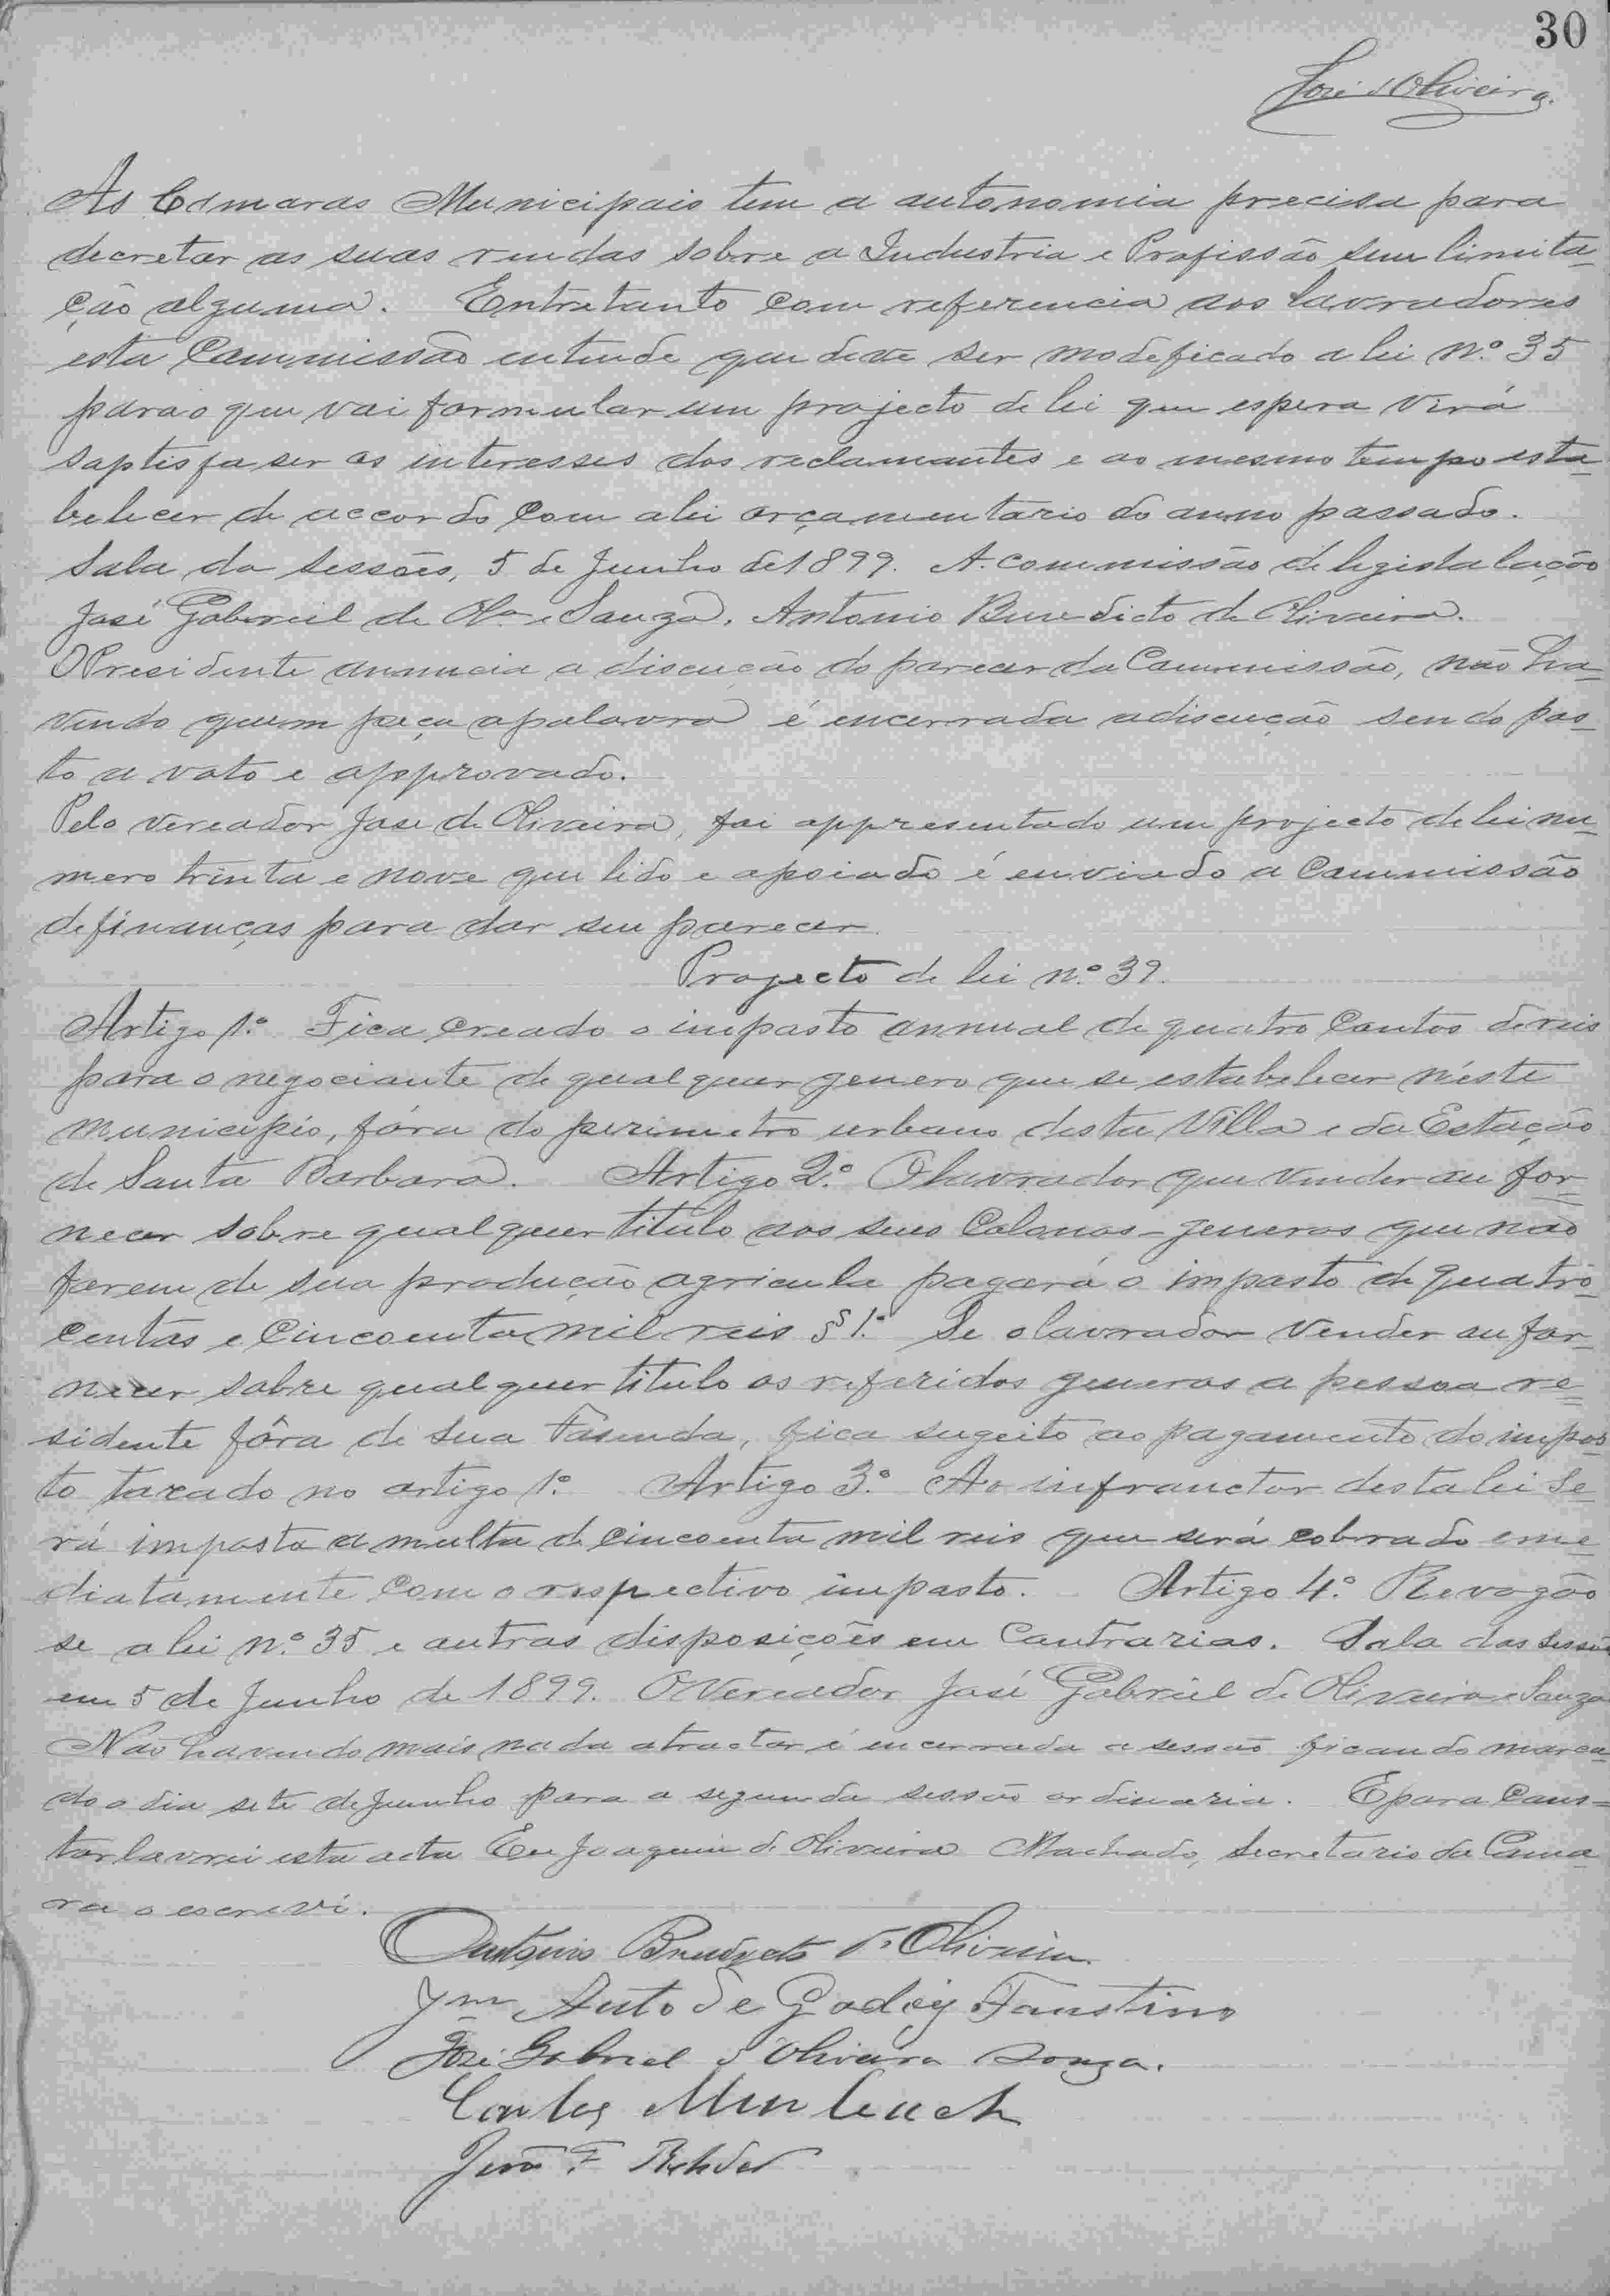 30
José d'Oliveira.
As Camaras Municipais tem a autonomia precisa para
decretar as suas rendas sobre a Industria e Profissão sem limita-
ção alguma. Entretanto com referencia aos lavradores
esta Commissão entende que deve ser modeficado a lei n.º 35
para o que vai formular um projecto de lei que espera virá
saptisfaser os interesses dos reclamantes e ao mesmo tempo esta-
belecer de accordo com a lei orçamentario do anno passado.
Sala da Sessões, 5 de Junho de 1899. A Commissão de legistalação
José Gabreil de Olª e Souza. Antonio Benedicto de Oliveira.
O Presidente annuncia a discução do parecer da Commissão, não ha-
vendo quem peça a palavra é encerrada a discução sendo pos-
to a voto e approvado.
Pelo vereador José de Oliveira, foi appresentado um projecto de lei nu-
mero trinta e nove que lido e apoiado é enviado a Commissão
de finanças para dar seu parecer.
Projecto de lei n.º 39.
Artigo 1.º Fica creado o imposto annual de quatro Contos de reis
para o negociante de qualquer genero que se estabelecer n'éste
municipio, fóra do perimetro urbano desta Villa e da Estação
de Santa Barbara. Artigo 2.º O lavrador que vender ou for-
necer sobre qualquer titulo aos seus Colonos - generos que não
forem de sua produção agricula pagará o imposto de quatro-
centos e cincoenta mil reis § 1.º Se o lavrador vender ou for-
necer sobre qualquer titulo os referidos generos a pessoa re-
sidente fôra de sua Fasenda, fica sugeito ao pagamento do impos-
to taxado no artigo 1.º Artigo 3.º Ao infranctor desta lei se-
rá imposta a multa de cincoenta mil reis que será cobrado eme-
diatamente com o respectivo imposto. Artigo 4.º Revogão
se a lei n.º 35 e outras disposições em Contrarias. Sala das Sessões
em 5 de Junho de 1899. O Vereador José Gabriel de Oliveira e Souza
Não havendo mais nada a tractar é encerrada a sessão ficando marca-
do o dia sete de Junho para a segunda sessão ordinaria. E para Cons-
tar lavrei esta acta Eu Joaquim de Oliveira Machado, Secretario da Cama-
ra o escrevi.
Antonio Benedicto de Oliveira
Jm Anto de Godoy Faustino
José Gabriel d'Oliveira Souza.
Carlos
João F. Rehder